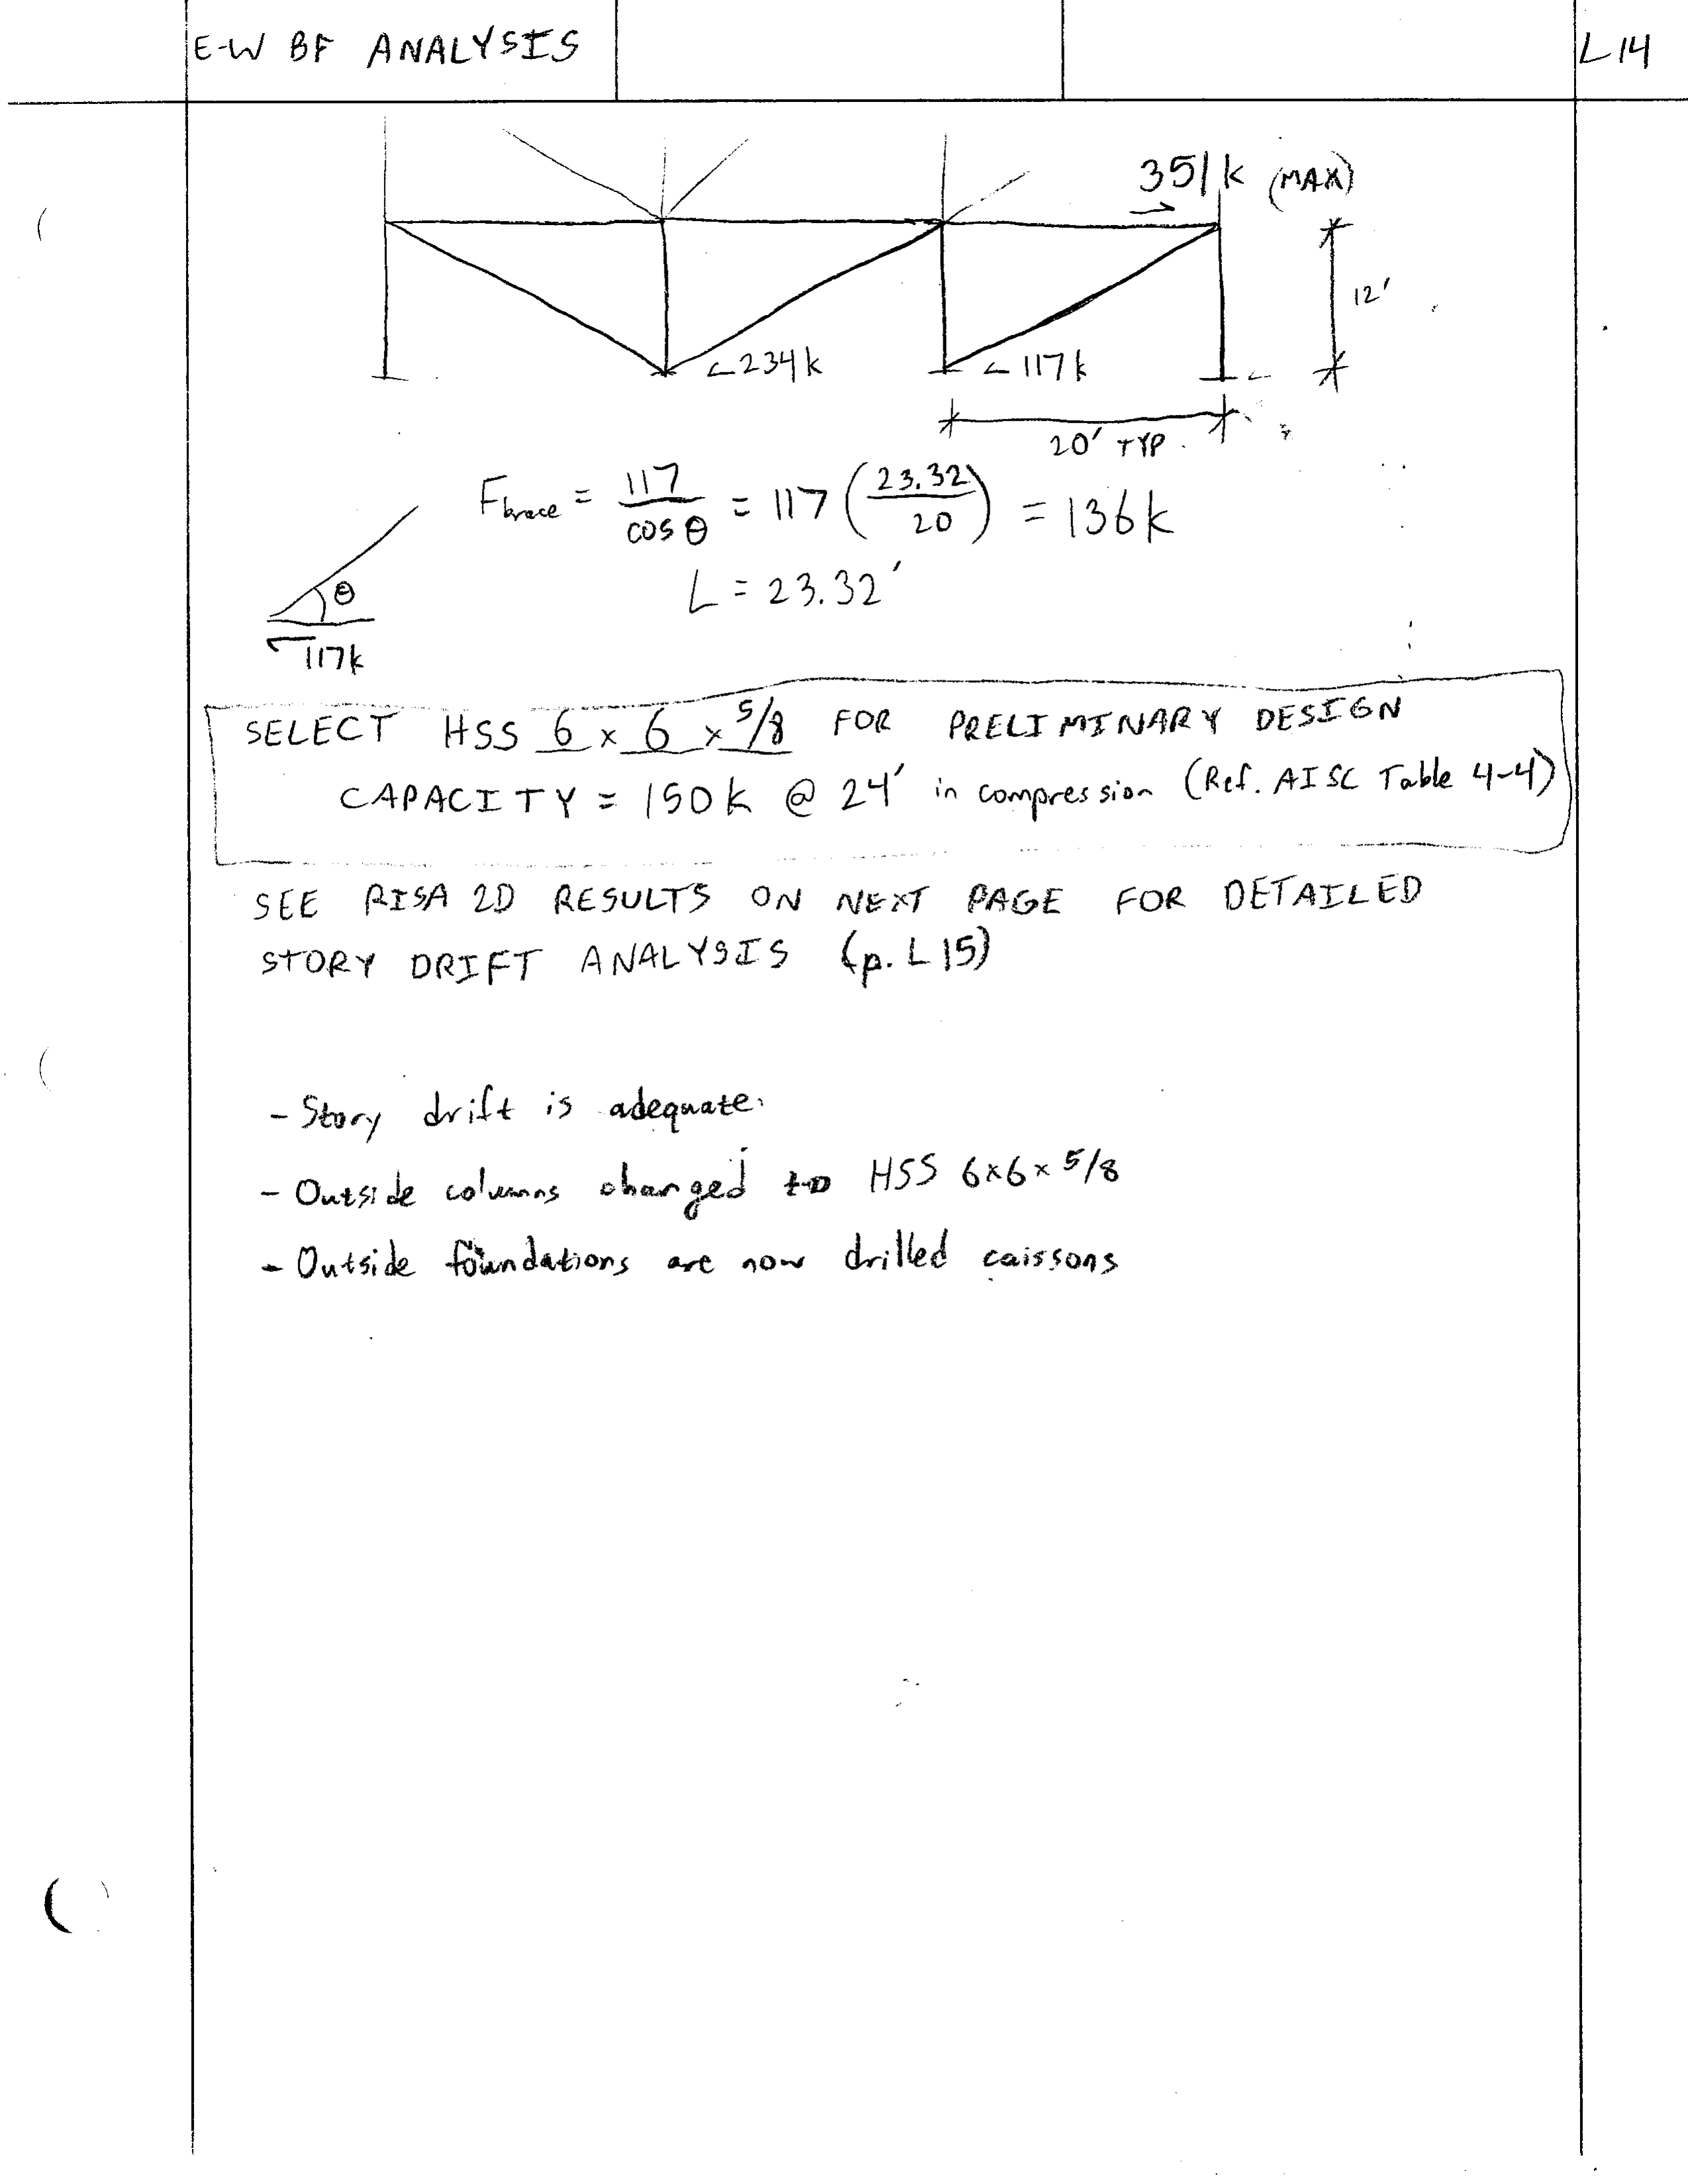 E-W BF ANALYSIS
L 14
351k (MAX)
12'
234k
117k
20' TYP.
Fbrace = 117 / cos θ = 117 (23.32 / 20) = 136k
L = 23.32'
θ
117k
SELECT HSS 6 x 6 x 5/8 FOR PRELIMINARY DESIGN
CAPACITY = 150k @ 24' in compression (Ref. AISC Table 4-4)
SEE RISA 2D RESULTS ON NEXT PAGE FOR DETAILED
STORY DRIFT ANALYSIS (p. L 15)
- Story drift is adequate.
- Outside columns changed to HSS 6x6x 5/8
- Outside foundations are now drilled caissons